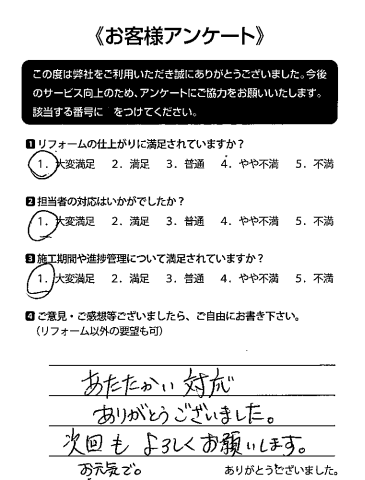 《お客様アンケート》
この度は弊社をご利用いただき誠にありがとうございました。今後
のサービス向上のため、アンケートにご協力をお願いいたします。
該当する番号に をつけてください。
1 リフォームの仕上がりに満足されていますか？
1. 大変満足 2. 満足 3. 普通 4. やや不満 5. 不満
2 担当者の対応はいかがでしたか？
1. 大変満足 2. 満足 3. 普通 4. やや不満 5. 不満
3 施工期間や進捗管理について満足されていますか？
1. 大変満足 2. 満足 3. 普通 4. やや不満 5. 不満
4 ご意見・ご感想等ございましたら、ご自由にお書き下さい。
（リフォーム以外の要望も可）
あたたかい 対応
ありがとうございました。
次回も よろしくお願いします。
お元気で。
ありがとうございました。